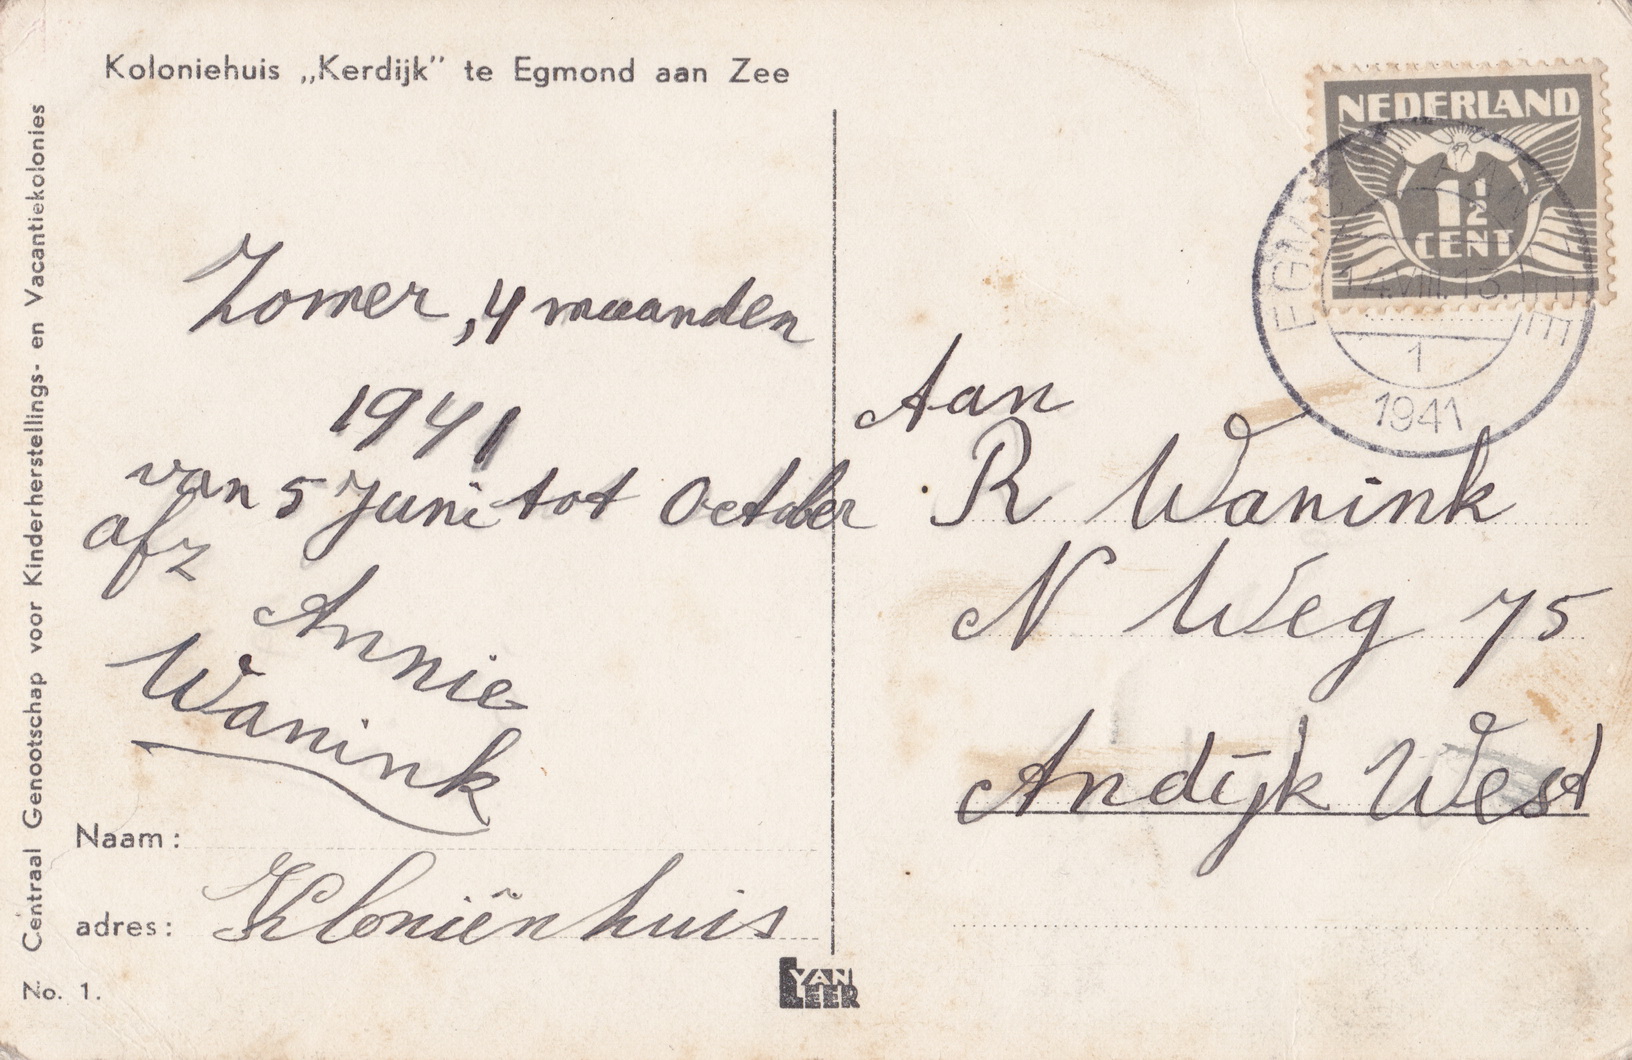 Koloniehuis „Kerdijk” te Egmond aan Zee
Centraal Genootschap voor Kinderherstellings- en Vacantiekolonies
No. 1.
Zomer, 4 maanden
1941
van 5 Juni tot October
afz
Annie
Wanink
Naam:
adres: Kloniënhuis
VAN
LEER
NEDERLAND
1½
CENT
14.VIII.13
1
1941
Aan
R Wanink
N Weg 75
Andijk West